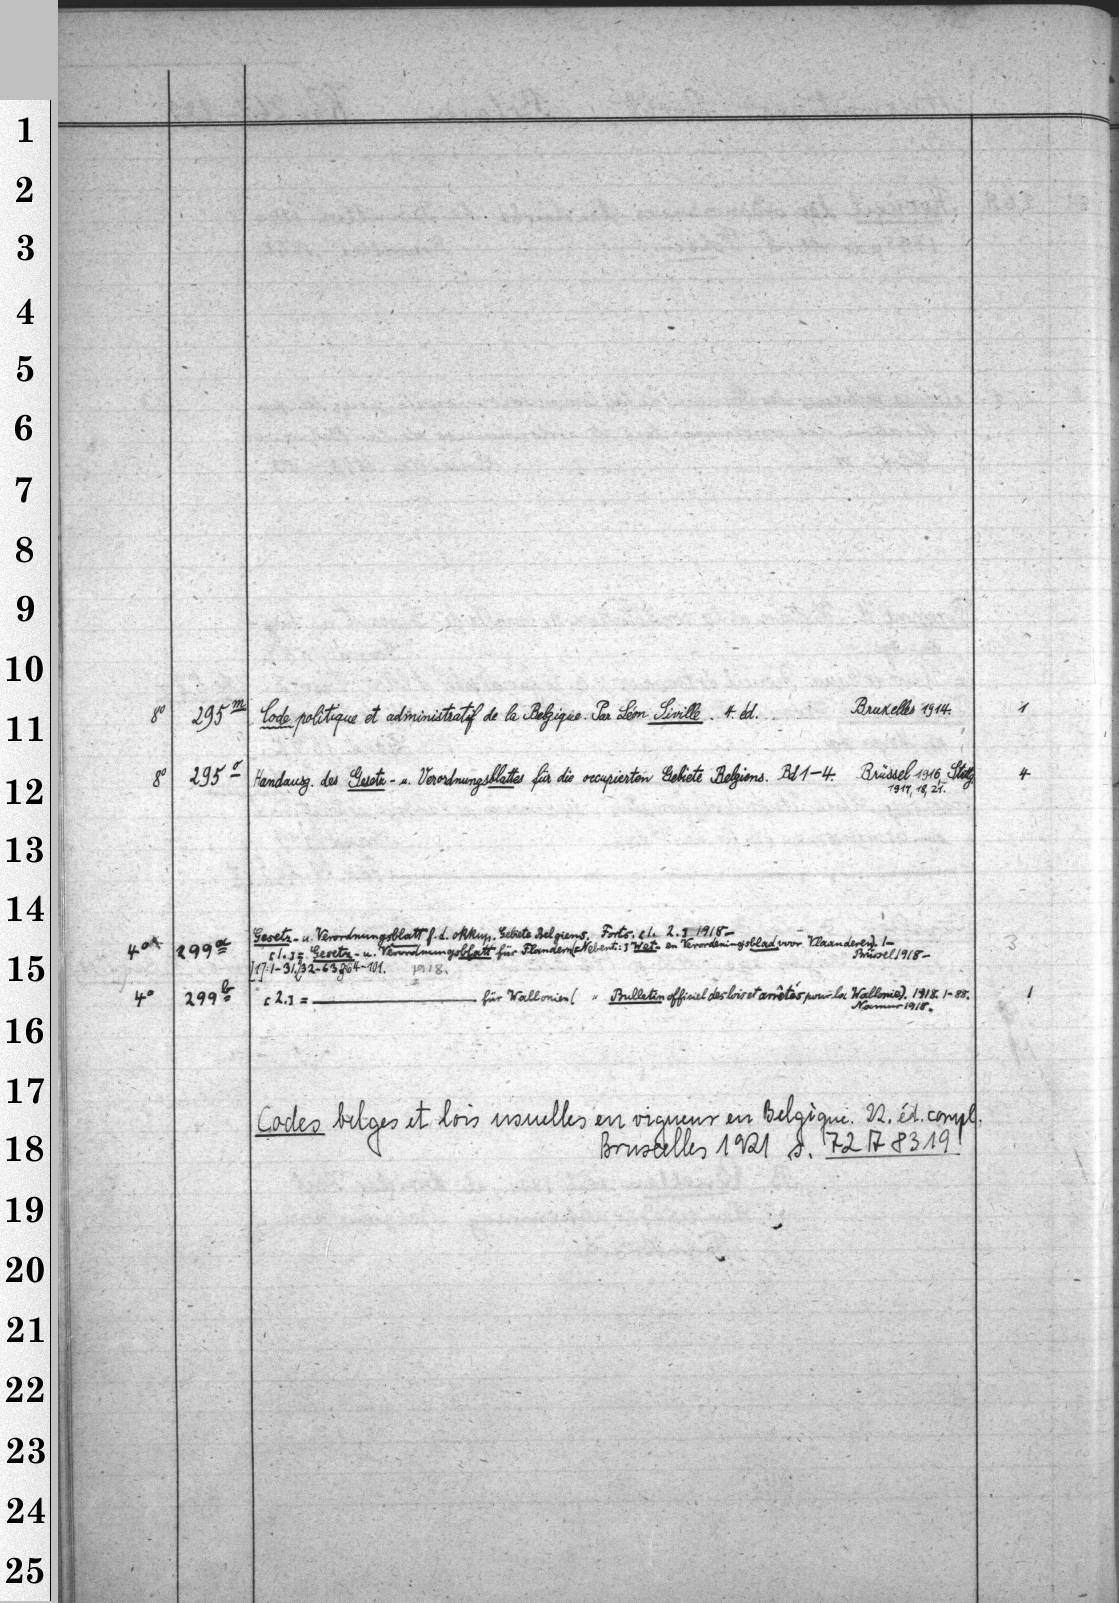 1
2
3
4
5
6
7
8
9
10
11
8° 295 m Code politique et administratif de la Belgique. Par Léon Siville. 4. éd. Bruxelles 1914. 1
12
8° 295 o Handausg. des Gesetz- u. Verordnungsblattes für die occupierten Gebiete Belgiens. Bd 1-4. Brüssel 1916, 4
1917, 18, 21.
13
14
Gesetz- u. Verordnungsblatt f. d. okkup. Gebiete Belgiens. Forts. [1. 2.] 1918-
4° 299 a [1.] = Gesetz- u. Verordnungsblatt für Flandern (Nebent.:] Wet- en Verordeningsblad voor Vlaanderen). 1- 3
Brüssel 1918-
15
1-31, 32-63, 64-101. 1918.
4° 299 b [2.] = für Wallonien ( " Bulletin officiel des lois et arrêtés pour la Wallonie). 1918. 1-88. 1
Namur 1918.
16
17
Codes belges et lois usuelles en vigueur en Belgique. 22. éd. compl.
18
Bruxelles 1921 s. 72 8319
19
20
21
22
23
24
25